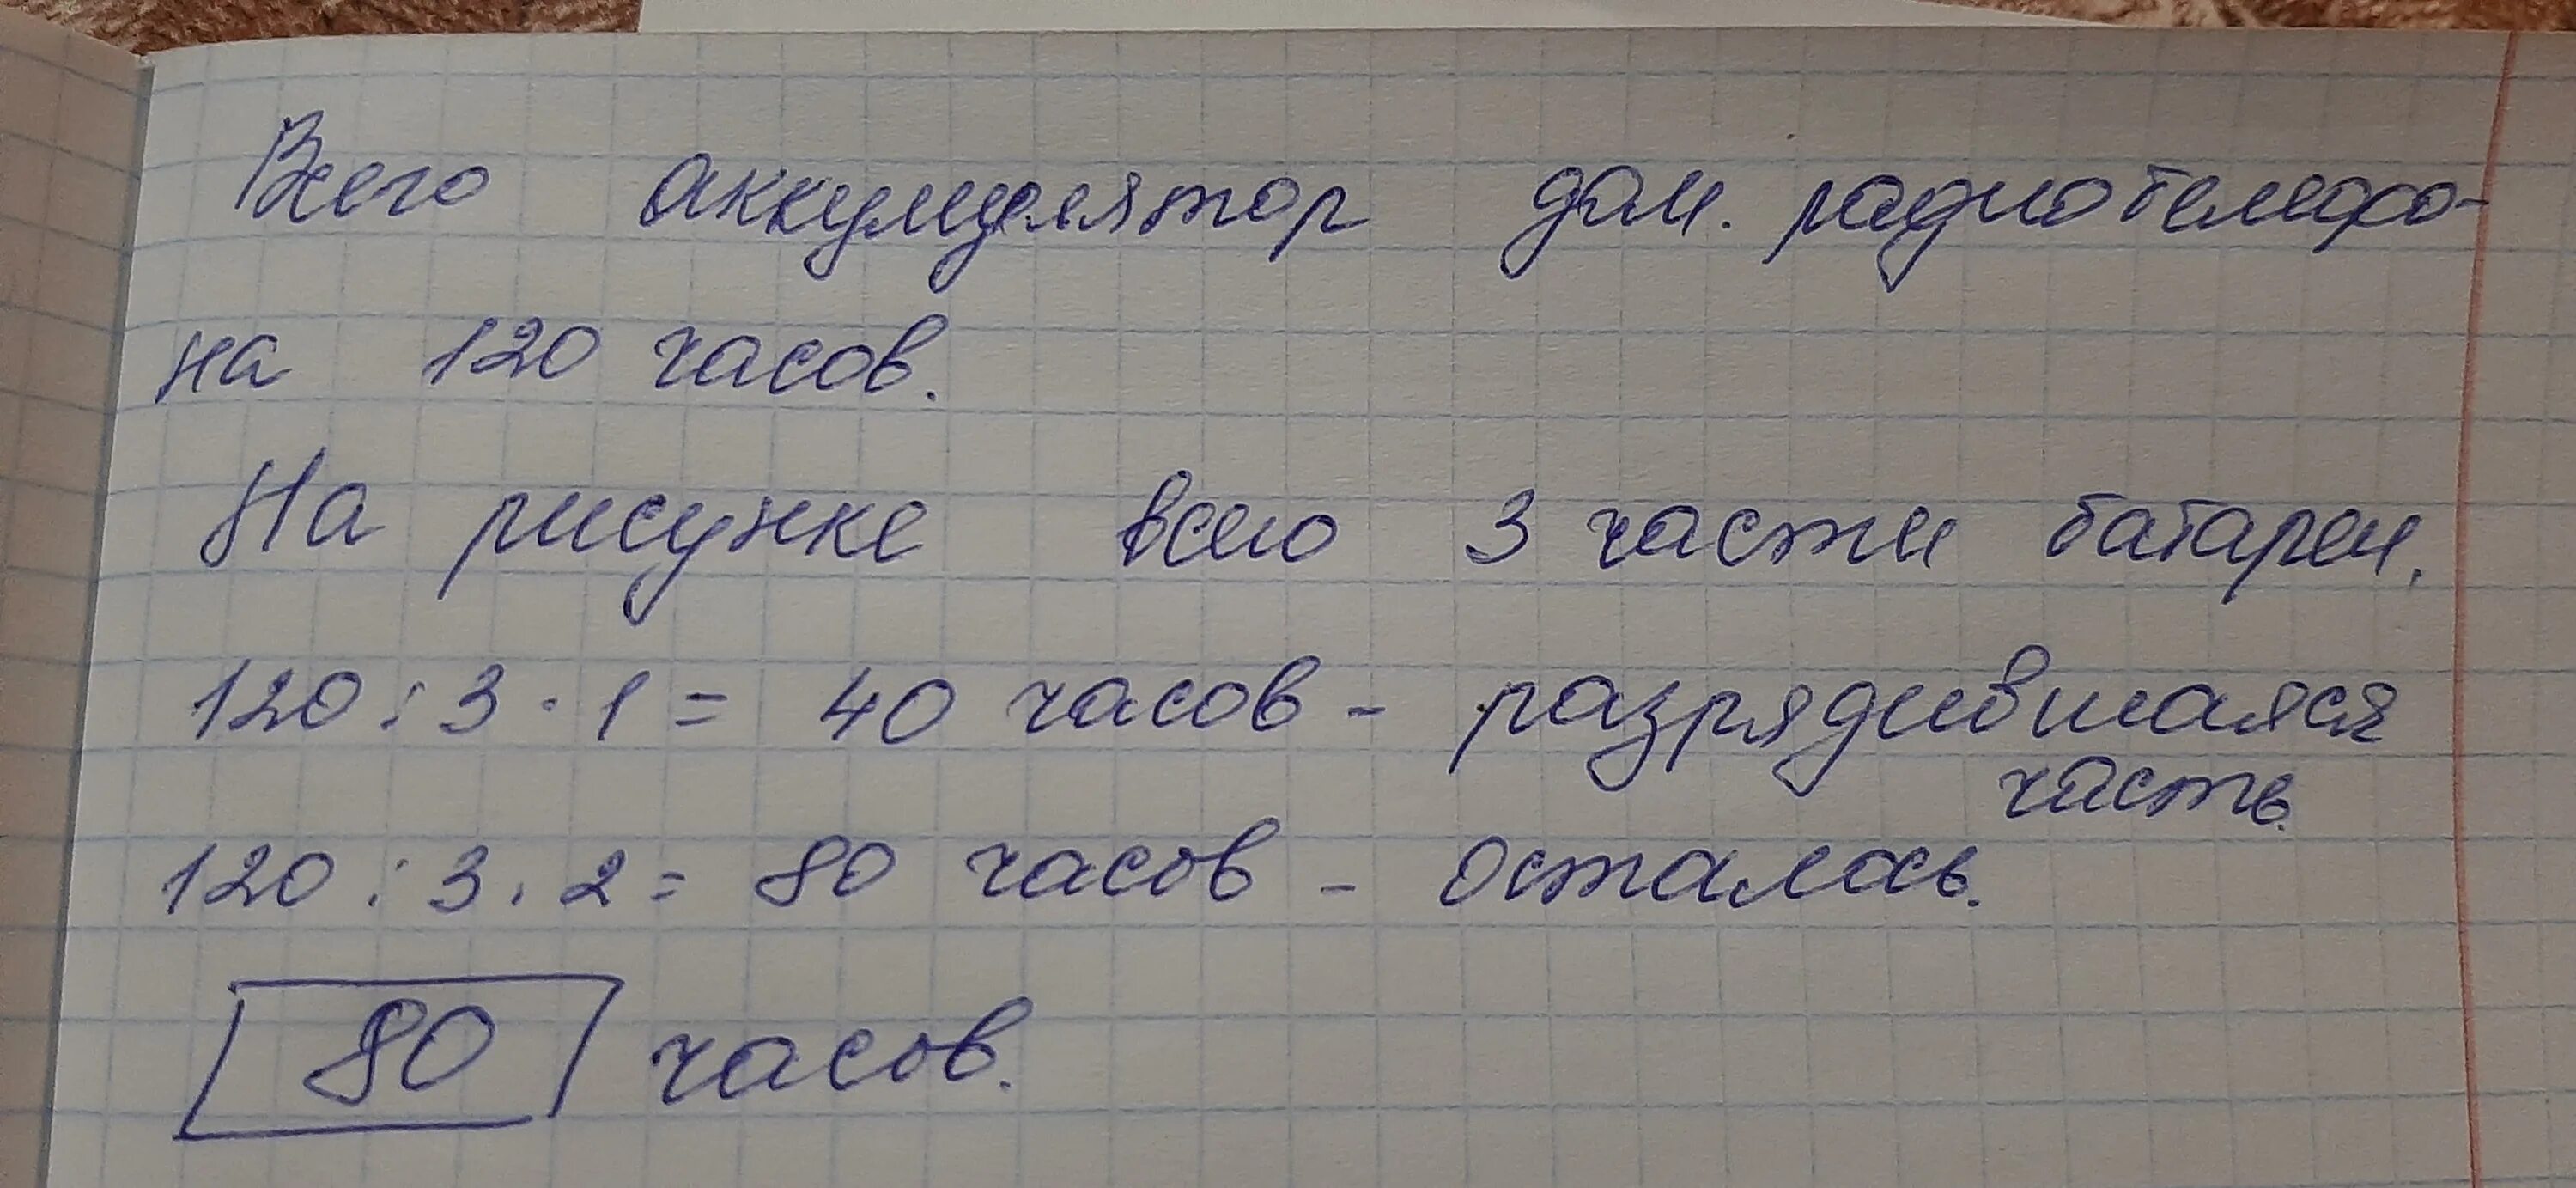 Всего аккумулятор дом. радиотелефо-
на 120 часов.
На рисунке всего 3 части батареи.
120 : 3 · 1 = 40 часов - разрядившаяся
часть.
120 : 3 · 2 = 80 часов - осталось.
80 часов.